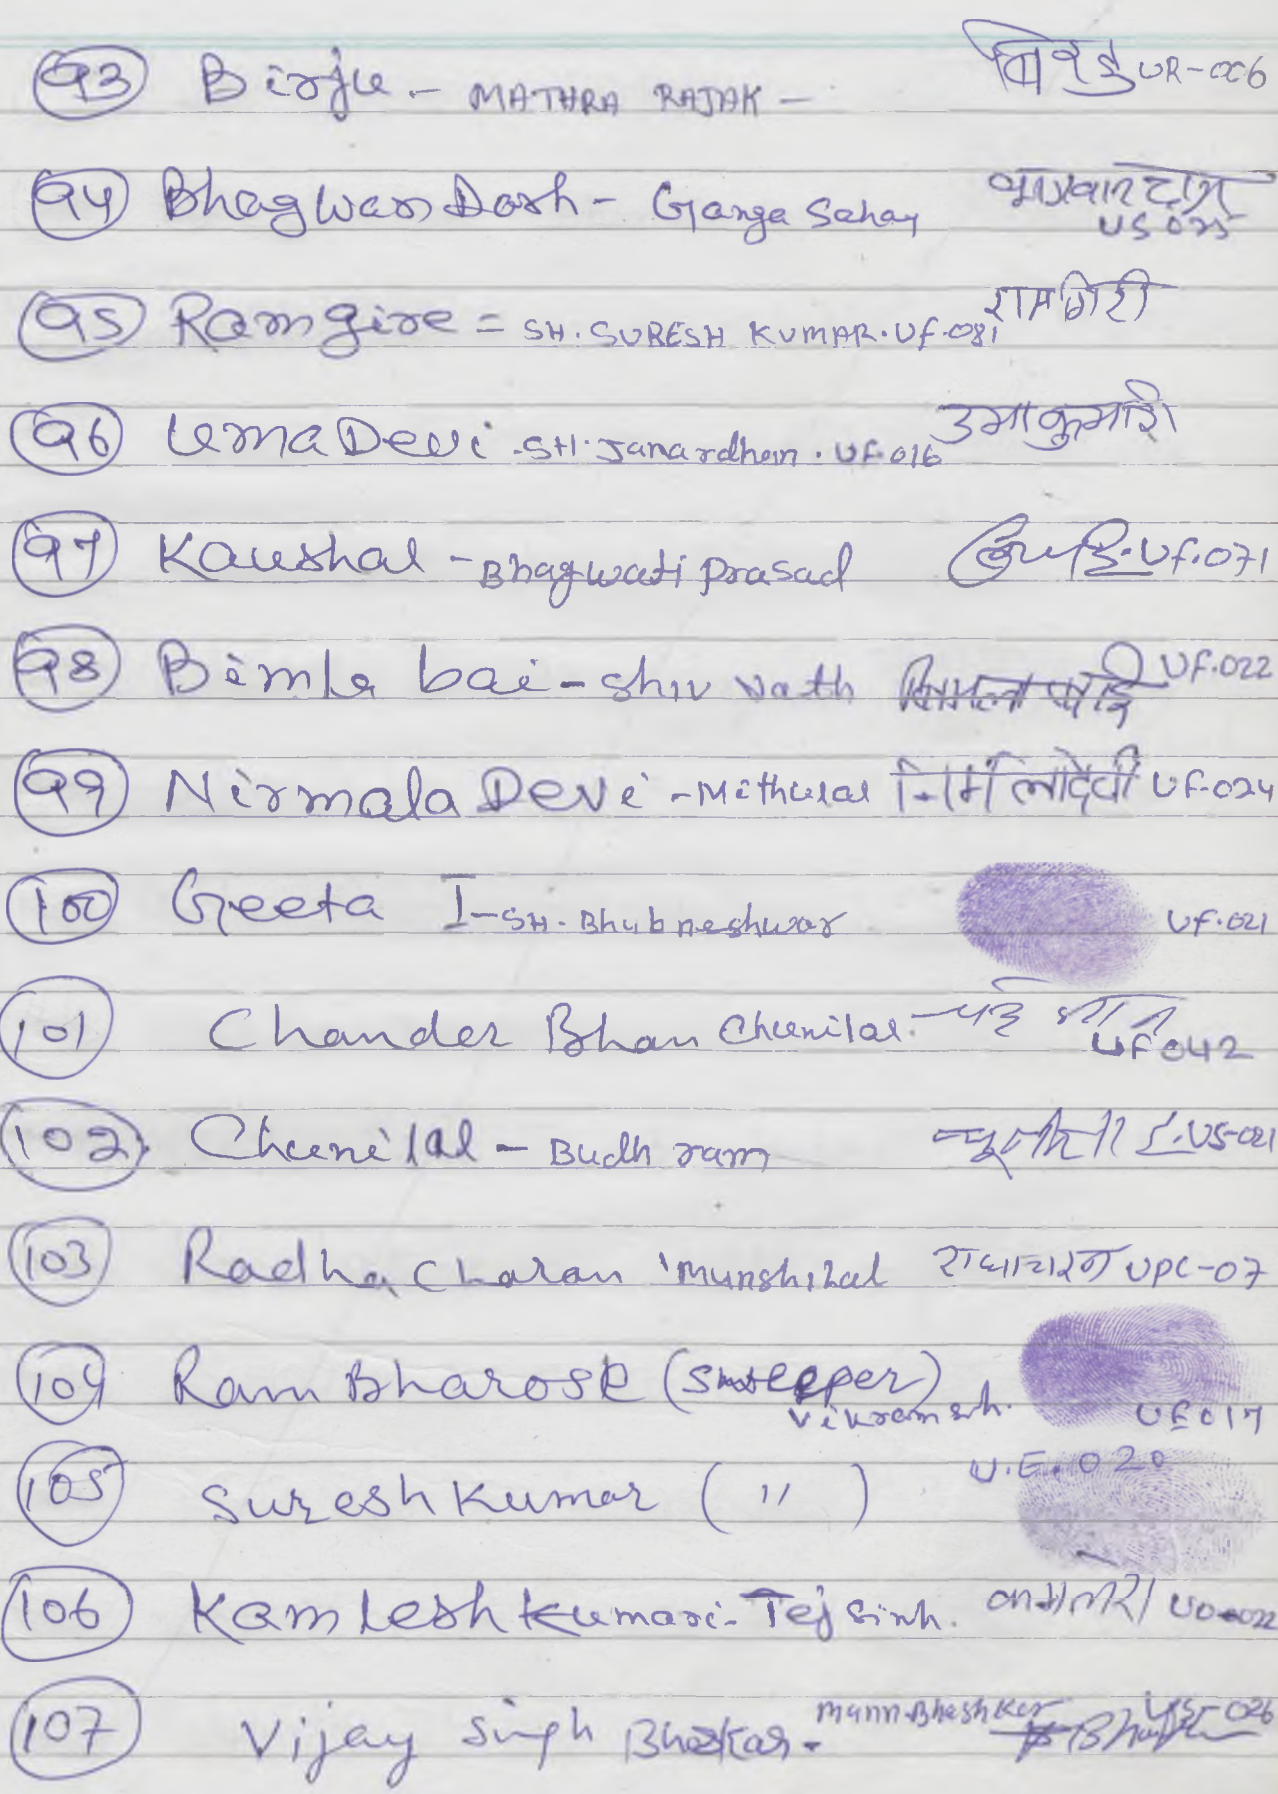 93 Birju - MATHRA RAJAK - UR-006
94 Bhagwan Dash - Ganga Sahay भगवान दास
US 025
95 Ramgire = SH. SURESH KUMAR. UF-081 रामगिरी
96 Uma Devi - SH. Janardhan. UF.016 उमा कुमारी
97 Kaushal - Bhagwati Prasad UF.071
98 Bimla bai - Shiv Nath विमला बाई UF.022
99 Nirmala Devi - Mithulal निर्मला देवी UF-024
100 Geeta I - SH. Bhubneshwar UF.021
101 Chander Bhan Chunilal.
UF 042
102 Chunilal - Budh ram US-021
103 Radha Charan Munshilal राधाचरन UPC-07
104 Ram Bharose (Sweeper)
Vikram sh. UF 017
U.F. 020
105 Suresh Kumar ( " )
106 Kamlesh Kumari - Tej Sinh. कमलेश UO-022
107 Vijay Singh Bhaskar - Mann Bhashkar US-026